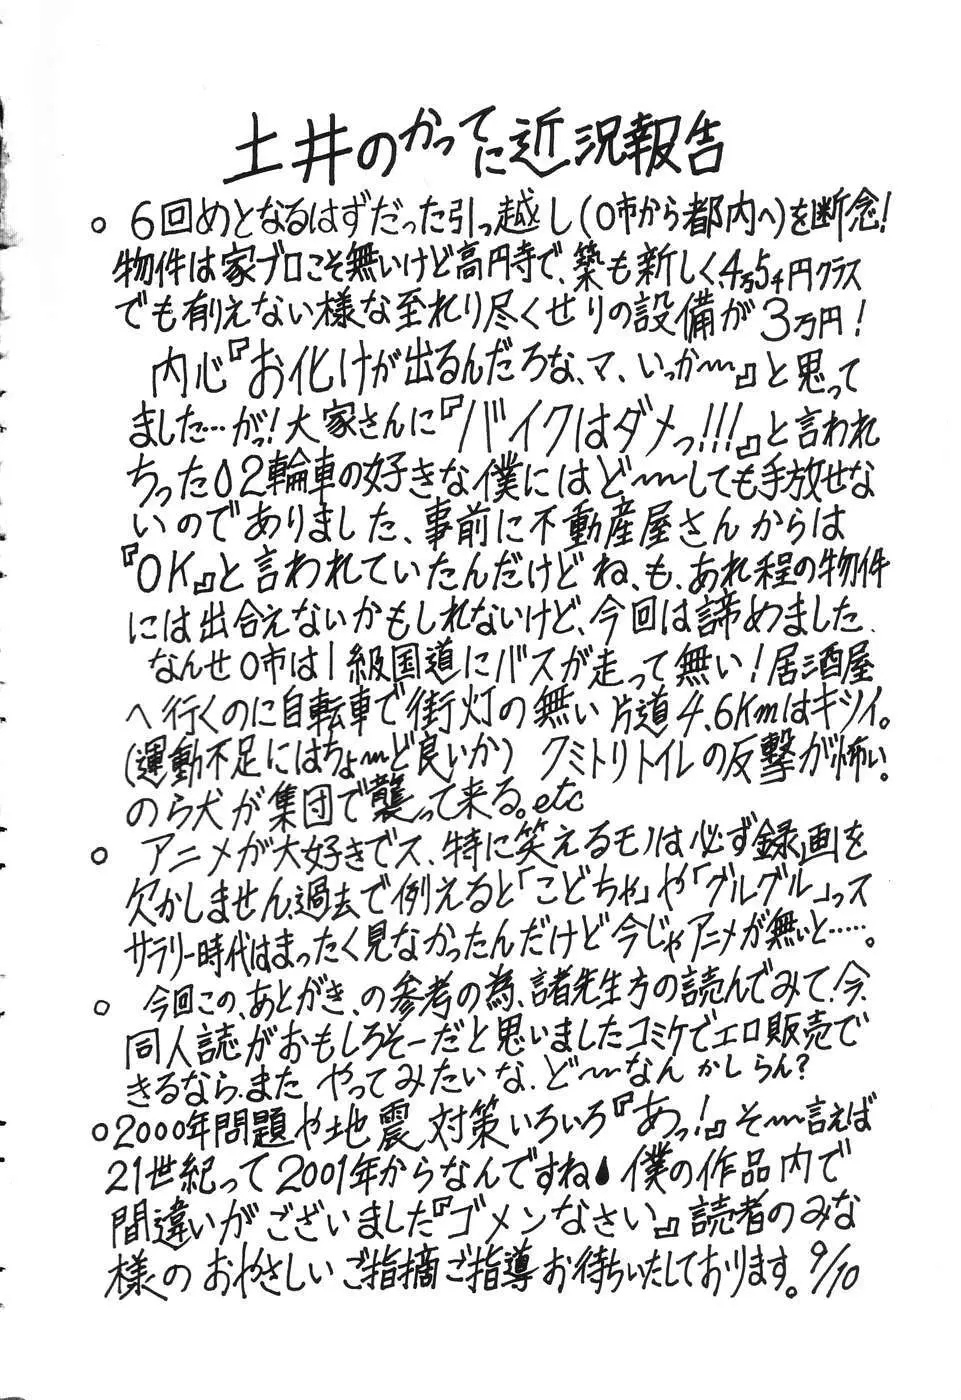 土井のかってに近況報告
○ 6回めとなるはずだった引っ越し(O市から都内へ)を断念!
物件は家ブロこそ無いけど高円寺で、築も新しく、4万5千円クラス
でも有りえない様な至れり尽くせりの設備が3万円!
内心『お化けが出るんだろな、マ、いっか〜〜』と思って
ました…がっ!大家さんに『バイクはダメっ!!!』と言われ
ちった。2輪車の好きな僕にはど〜〜しても手放せな
いのでありました、事前に不動産屋さんからは
『OK』と言われていたんだけどね、も、あれ程の物件
には出合えないかもしれないけど、今回は諦めました、
なんせO市は1級国道にバスが走って無い!居酒屋
へ行くのに自転車で街灯の無い片道4.6Kmはキツイ。
(運動不足にはちょ〜〜ど良いか) クミトリトイレの反撃が怖い。
のら犬が集団で襲って来る。etc
○ アニメが大好きでス、特に笑えるモノは必ず録画を
欠かしません、過去で例えると「こどちゃ」や「グルグル」っス
サラリー時代はまったく見なかったんだけど今じゃアニメが無いと‥‥‥。
○ 今回この、あとがき、の参考の為、諸先生方の読んでみて!今、
同人誌がおもしろそーだと思いましたコミケでエロ販売で
きるなら、また やってみたいな、ど〜〜なんかしらん?
○ 2000年問題や地震対策いろいろ『あっ!』そ〜〜言えば
21世紀って2001年からなんですね 僕の作品内で
間違いがございました『ゴメンなさい』読者のみな
様のおやさしいご指摘ご指導お待ちいたしております。9/10